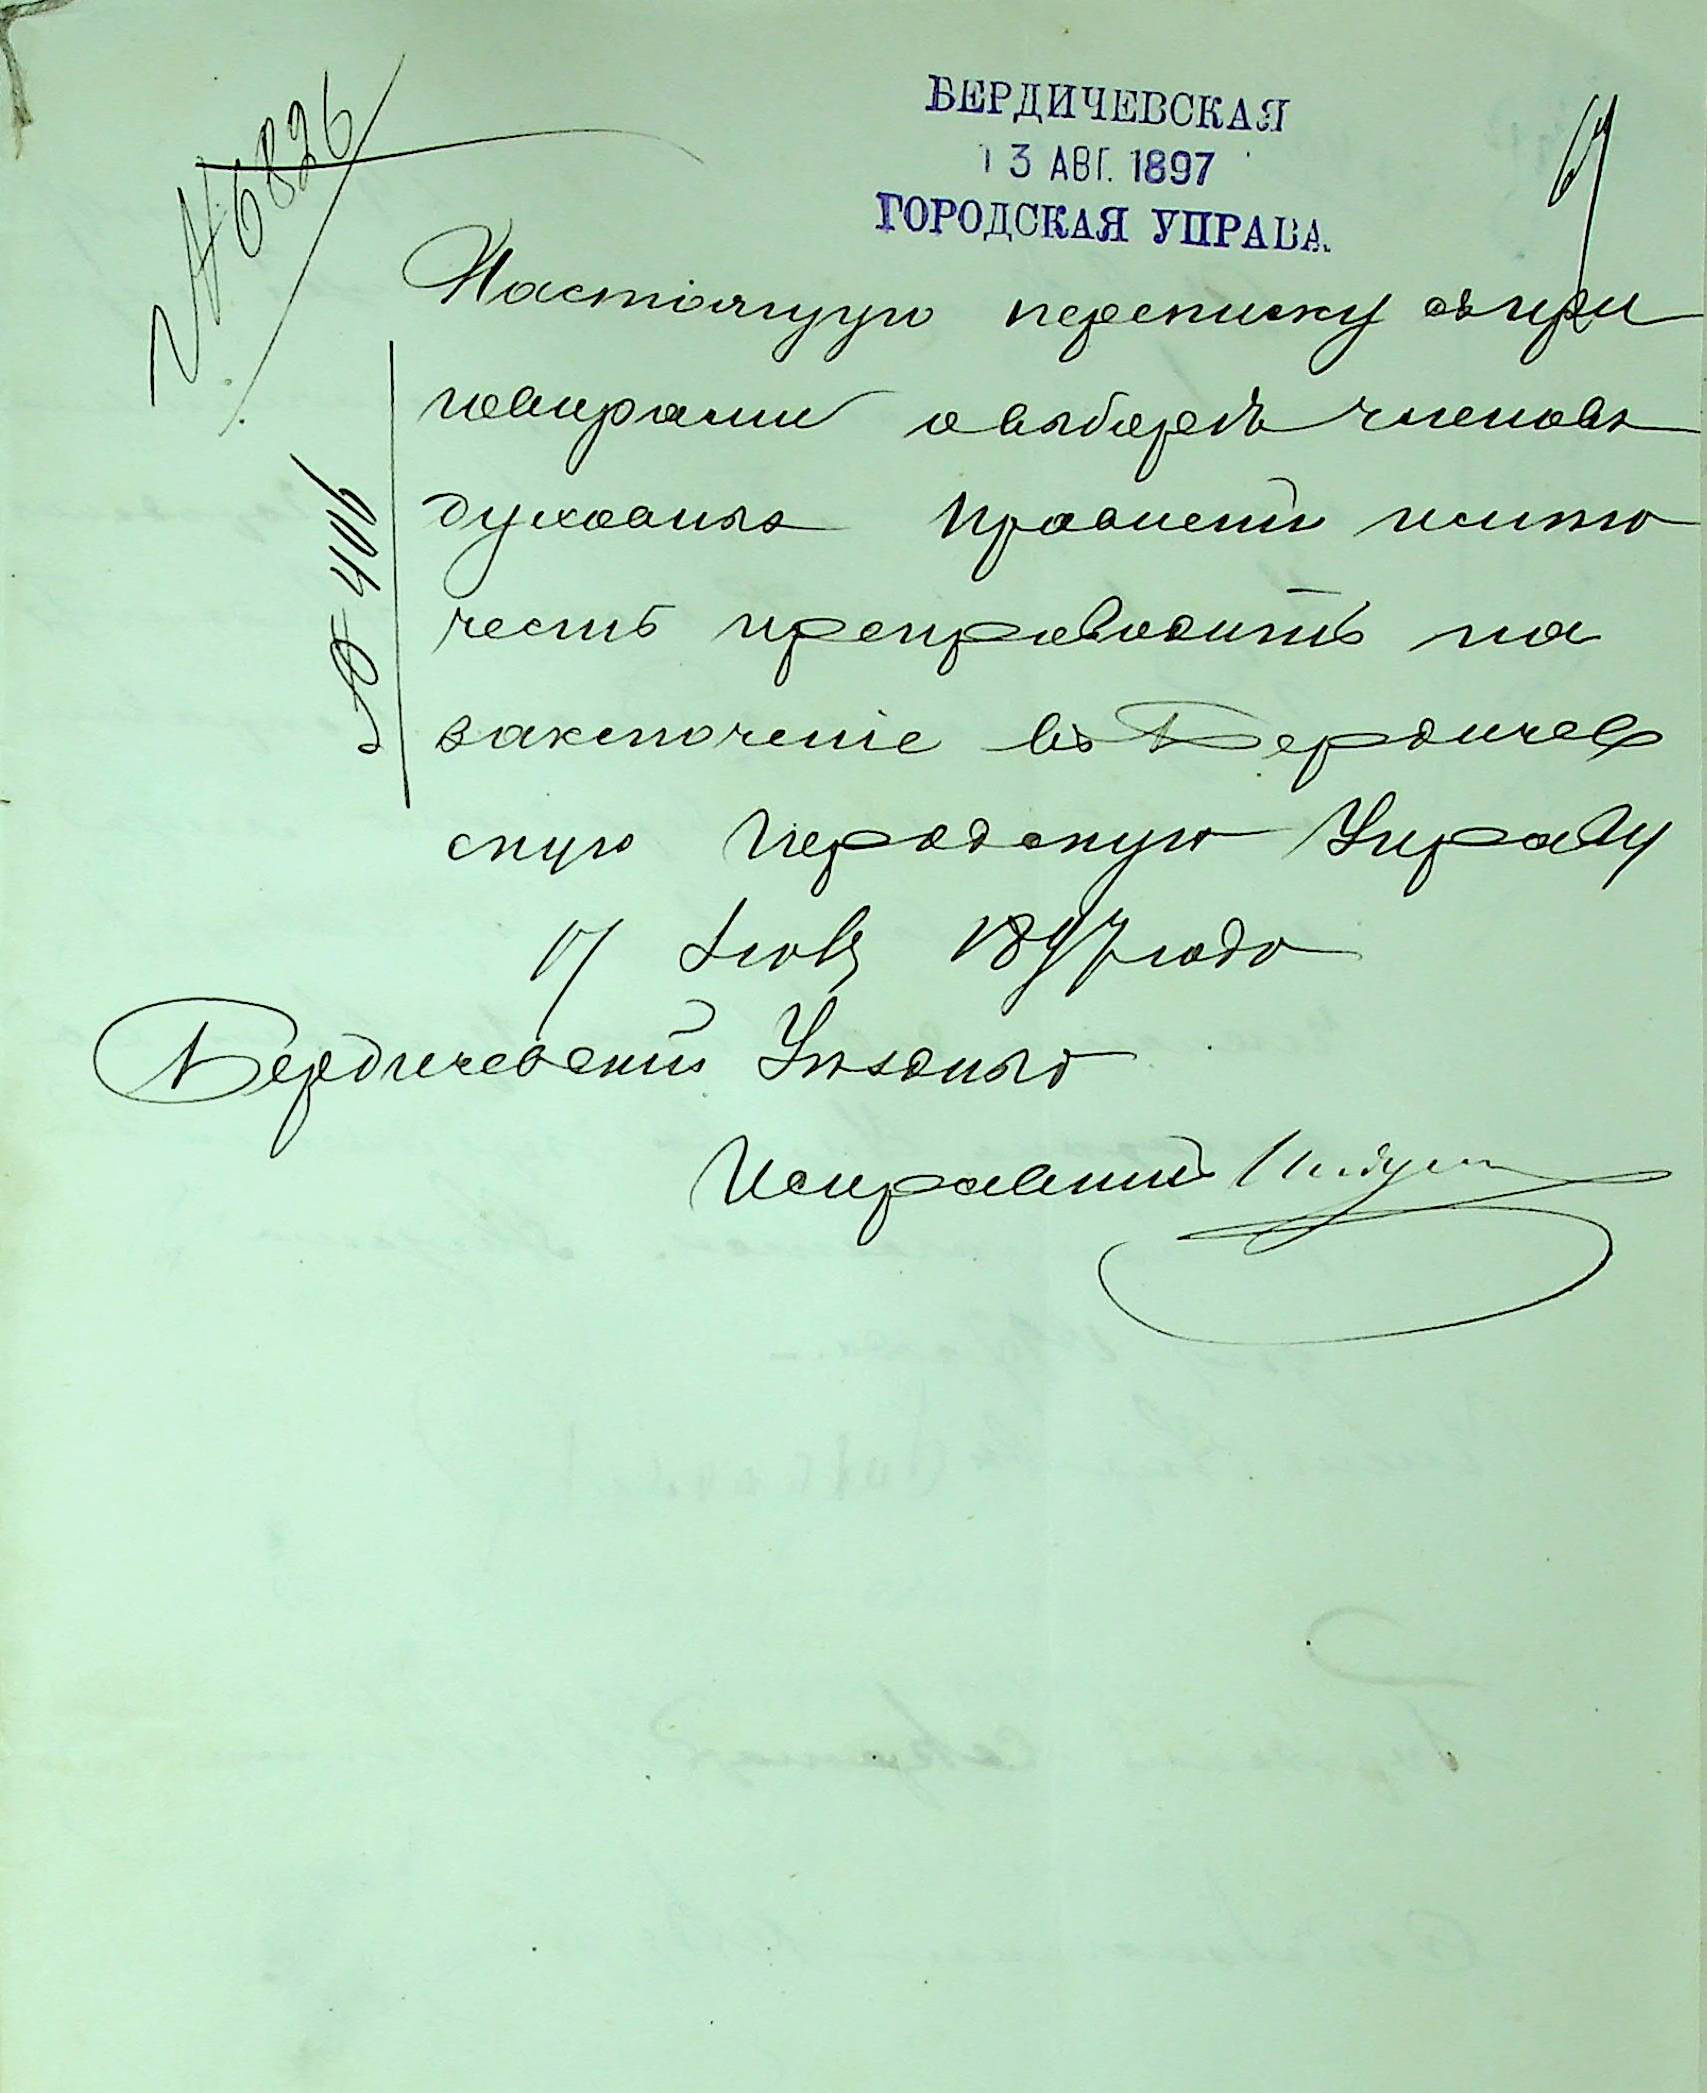 БЕРДИЧЕВСКАЯ
13 АВГ. 1897
ГОРОДСКАЯ УПРАВА.
№ 6826
Настоящую переписку съ при
говорами о выборѣ членовъ
духовныхъ правленій имѣю
честь препроводить на
заключеніе въ Бердичев
скую Городскую Управу
1897 года
№ 406
Бердичевскій Уѣздный
Исправникъ